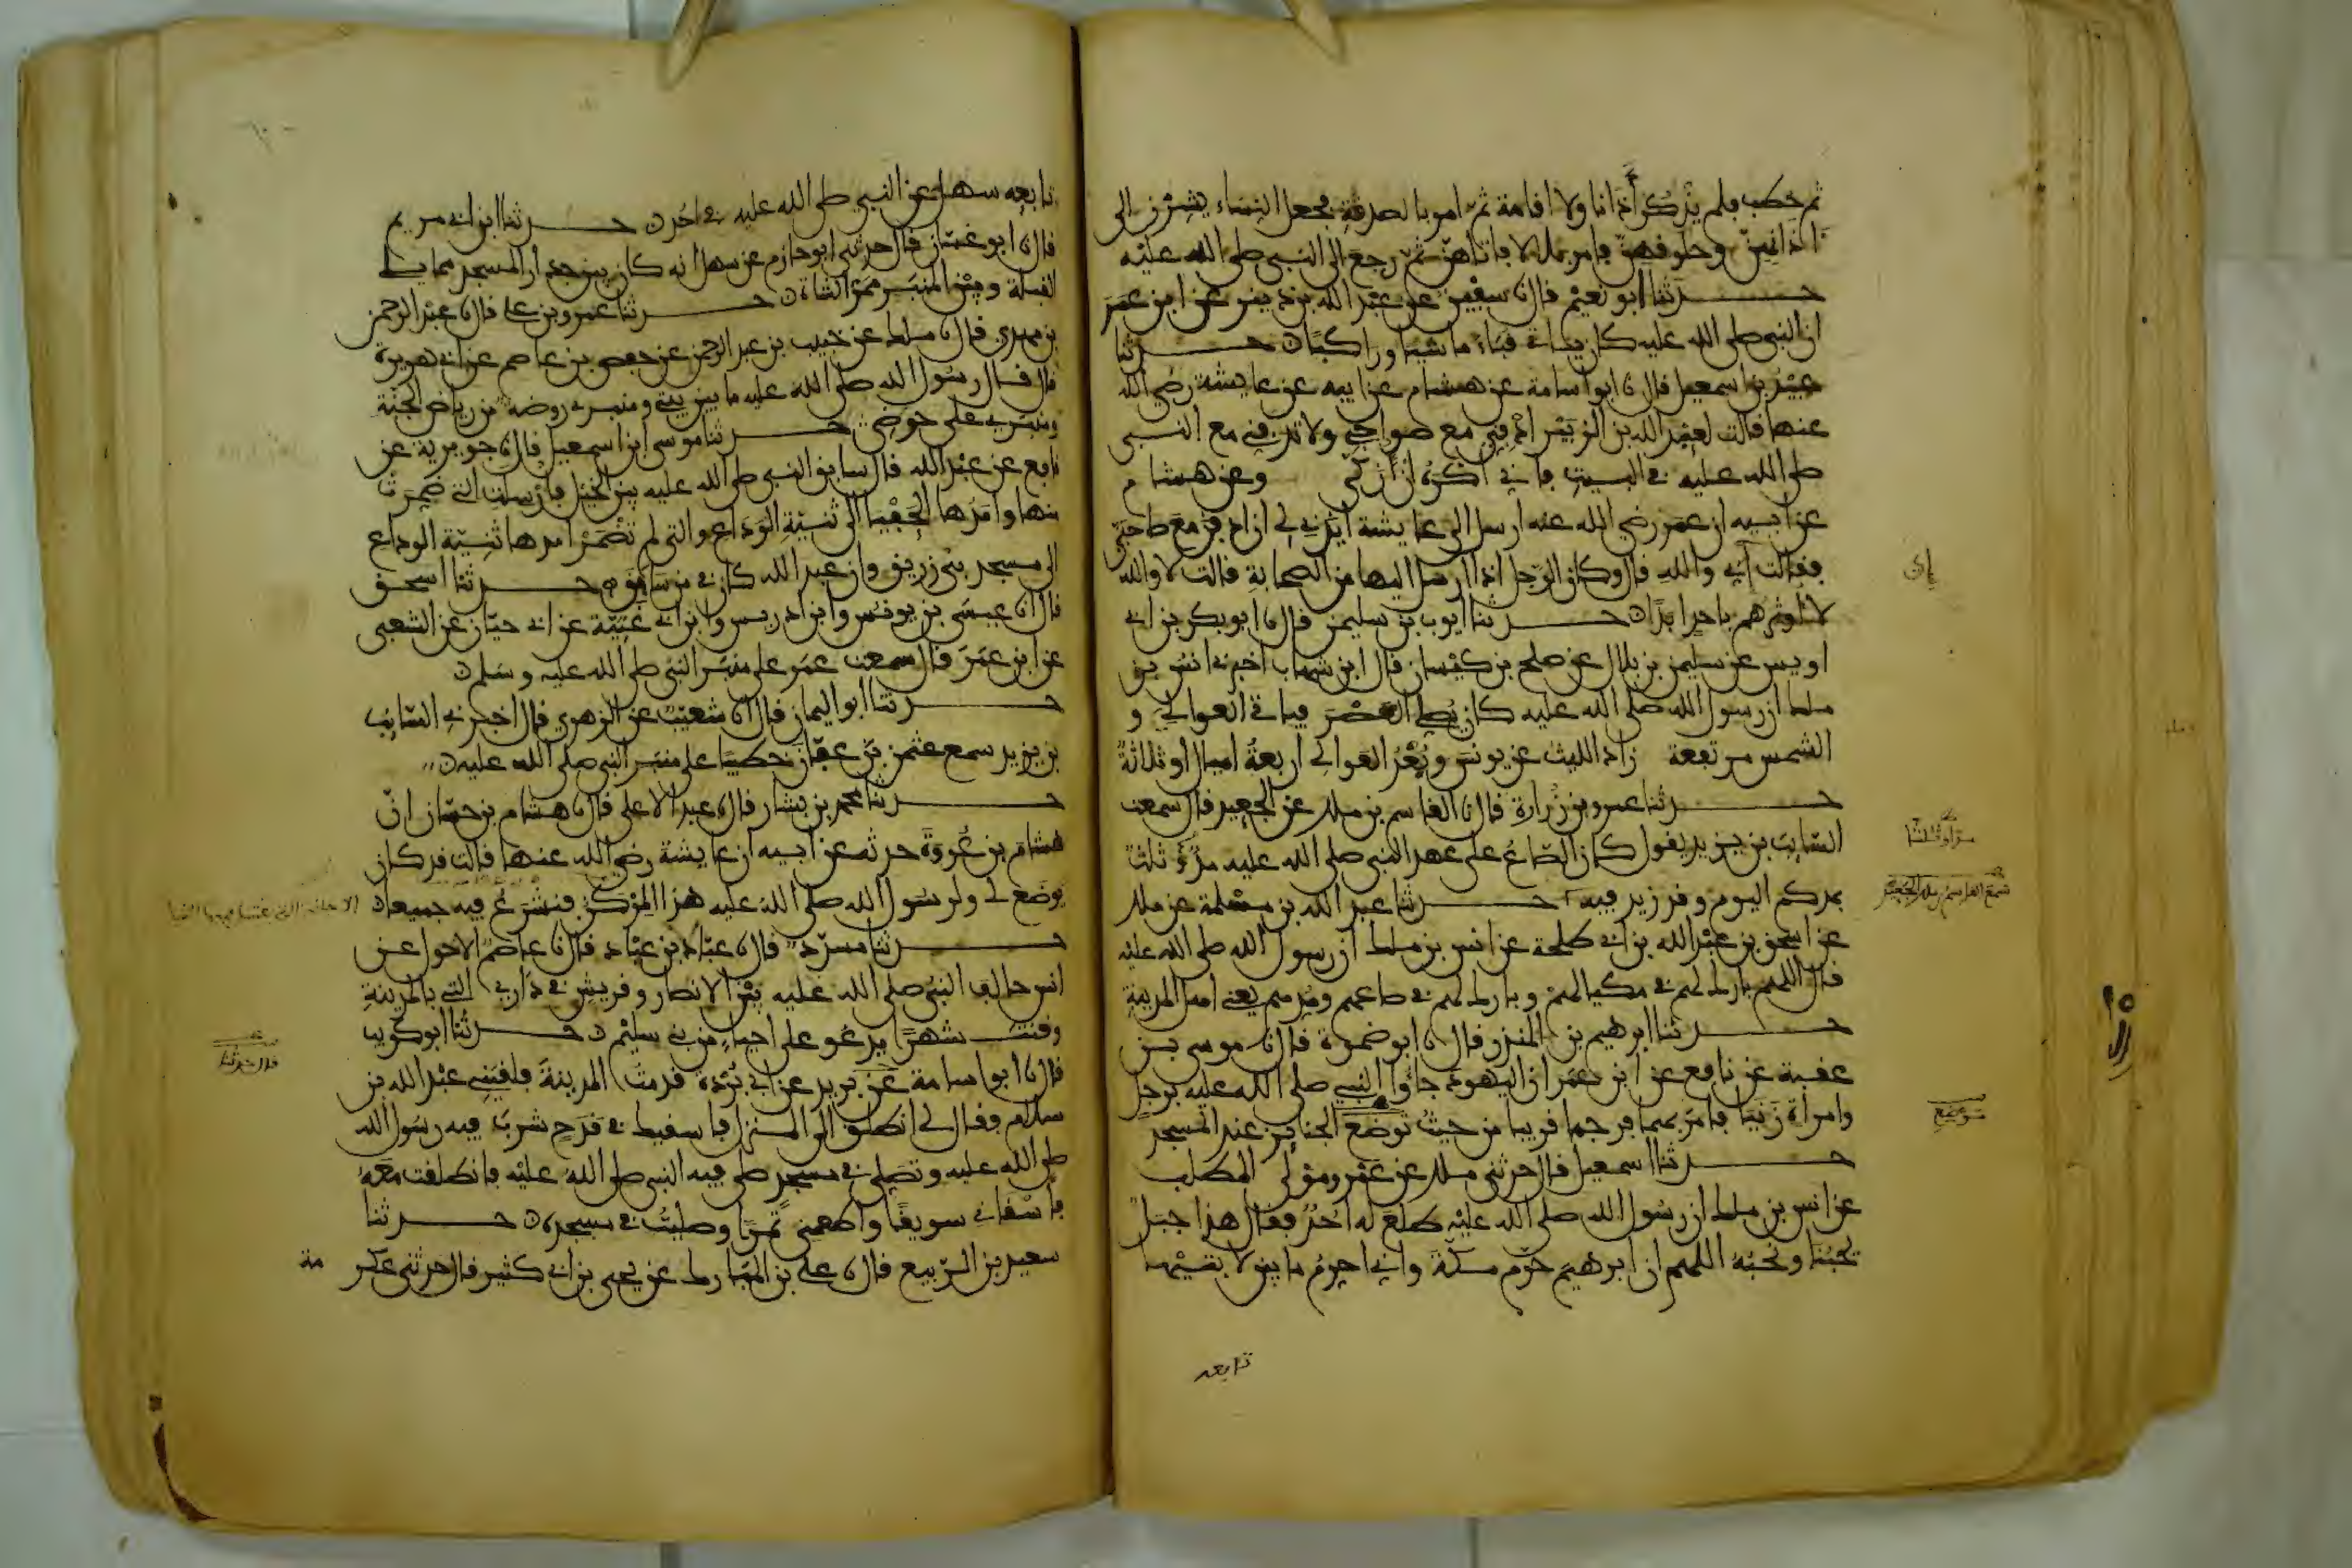 ثم خطب فلم يذكر أذانا ولا اقامة ثم امر بالصدقة فجعل النساء يشرن الى
اذانهن وحلوقهن فامر بلالا فاتاهن ثم رجع الى النبي صلى الله عليه
حدثنا ابو نعيم قال نا سفين عن عبد الله بن دينر عن ابن عمر
ان النبي صلى الله عليه كان ياتي قباء ماشيا وراكبا ن حدثنا
عبيد بن اسمعيل قال نا ابو اسامة عن هشام عن ابيه عن عايشة رضي الله
عنها قالت لعبد الله بن الزبير ادفني مع صواحبي ولا تدفني مع النبي
صلى الله عليه في البيت فاني اكره ان ازكى وعن هشام
عن ابيه ان عمر رضي الله عنه ارسل الى عايشة ايذني لي ان ادفن مع صاحبي
فقالت اي والله قال وكان الرجل اذا ارسل اليها من الصحابة قالت لا والله
لا اوثرهم باحد ابدا ن حدثنا ايوب بن سليمن قال نا ابو بكر بن ابي
اويس عن سليمن بن بلال عن صلح بن كيسان قال ابن شهاب اخبرني انس بن
ملك ان رسول الله صلى الله عليه كان يصلي العصر فياتي العوالي و
الشمس مرتفعة زاد الليث عن يونس وبعد العوالي اربعة اميال او ثلاثة
حدثنا عمرو بن زرارة قال نا القاسم بن ملك عن الجعيد قال سمعت
السايب بن يزيد يقول كان الصاع على عهد النبي صلى الله عليه مد وثلث
بمدكم اليوم وقد زيد فيه حدثنا عبد الله بن مسلمة عن ملك
عن اسحق بن عبد الله بن ابي طلحة عن انس بن ملك ان رسول الله صلى الله عليه
قال اللهم بارك لهم في مكيالهم وبارك لهم في صاعهم ومدهم يعني اهل المدينة
حدثنا ابرهيم بن المنذر قال نا ابو ضمرة قال نا موسى بن
عقبة عن نافع عن ابن عمر ان اليهود جاوا النبي صلى الله عليه برجل
وامراة زنيا فامر بهما فرجما قريبا من حيث توضع الجنايز عند المسجد
حدثنا اسمعيل قال حدثني ملك عن عمرو مولى المطلب
عن انس بن ملك ان رسول الله صلى الله عليه طلع له احد فقال هذا جبل
يحبنا ونحبه اللهم ان ابرهيم حرم مكة واني احرم ما بين لابتيها
تابعه
تابعه سهل عن النبي صلى الله عليه في احد ن حدثنا ابن ابي مريم
قال نا ابو غسان قال حدثني ابو حازم عن سهل انه كان بين جدار المسجد مما يلي
القبلة وبين المنبر ممر الشاة ن حدثنا عمرو بن علي قال نا عبد الرحمن
بن مهدي قال نا ملك عن خبيب بن عبد الرحمن عن حفص بن عاصم عن ابي هريرة
قال قال رسول الله صلى الله عليه ما بين بيتي ومنبري روضة من رياض الجنة
ومنبري على حوضي حدثنا موسى ابن اسمعيل قال نا جويرية عن
نافع عن عبد الله قال سابق النبي صلى الله عليه بين الخيل فارسلت التي ضمرت
منها وامدها الحفيا الى ثنية الوداع والتي لم تضمر امدها ثنية الوداع
الى مسجد بني زريق وان عبد الله كان في من سابق ن حدثنا اسحق
قال انا عيسى بن يونس وابن ادريس وابن ابي غنية عن ابي حيان عن الشعبي
عن ابن عمر قال سمعت عمر على منبر النبي صلى الله عليه وسلم ن
حدثنا ابو اليمان قال انا شعيب عن الزهري قال اخبرني السايب
بن يزيد سمع عثمن بن عفان خطيبا على منبر النبي صلى الله عليه ن
حدثنا محمد بن بشار قال نا عبد الاعلى قال نا هشام بن حسان ان
هشام بن عروة حدثه عن ابيه ان عايشة رضي الله عنها قالت قد كان
يوضع لي ولرسول الله صلى الله عليه هذا المركن فنشرع فيه جميعا ن
حدثنا مسدد قال نا عباد بن عباد قال نا عاصم الاحول عن
انس حالف النبي صلى الله عليه بين الانصار وقريش في داري التي بالمدينة
وقنت شهرا يدعو على احياء من بني سليم ن حدثنا ابو كريب
قال نا ابو اسامة عن بريد عن ابي بردة قدمت المدينة فلقيني عبد الله بن
سلام فقال لي انطلق الى المنزل فاسقيك في قدح شرب فيه رسول الله
صلى الله عليه وتصلي في مسجد صلى فيه النبي صلى الله عليه فانطلقت معه
فاسقاني سويقا واطعمني تمرا وصليت في مسجده ن حدثنا
سعيد بن الربيع قال نا علي بن المبارك عن يحيى بن ابي كثير قال حدثني عكر
مة
قال حدثنا